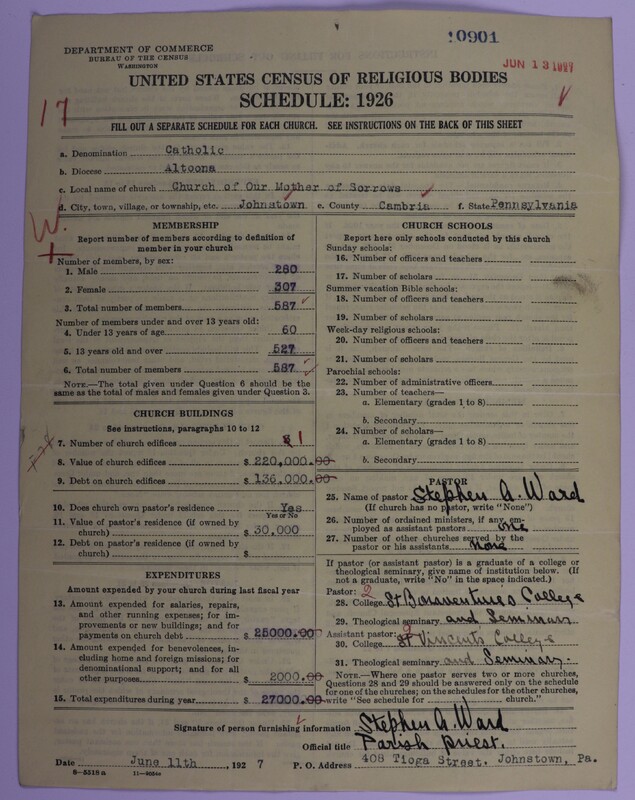 10901
DEPARTMENT OF COMMERCE
BUREAU OF THE CENSUS
WASHINGTON
JUN 13 1927
UNITED STATES CENSUS OF RELIGIOUS BODIES
SCHEDULE: 1926
17
FILL OUT A SEPARATE SCHEDULE FOR EACH CHURCH. SEE INSTRUCTIONS ON THE BACK OF THIS SHEET
a. Denomination Catholic
b. Diocese Altoona
c. Local name of church Church of Our Mother of Sorrows
d. City, town, village, or township, etc. Johnstown e. County Cambria f. State Pennsylvania
W.
MEMBERSHIP
Report number of members according to definition of
member in your church
Number of members, by sex:
1. Male 280
2. Female 307
3. Total number of members 587
Number of members under and over 13 years old:
4. Under 13 years of age 60
5. 13 years old and over 527
6. Total number of members 587
NOTE.—The total given under Question 6 should be
same as the total of males and females given under Question 3.
CHURCH BUILDINGS
See instructions, paragraphs 10 to 12
7. Number of church edifices 1
8. Value of church edifices $ 220,000.00
9. Debt on church edifices $ 136,000.00
10. Does church own pastor's residence? Yes
Yes or No
11. Value of pastor's residence (if owned by
church) $ 30,000
12. Debt on pastor's residence (if owned by
church) $
EXPENDITURES
Amount expended by your church during last fiscal year
13. Amount expended for salaries, repairs,
and other running expenses; for im-
provements or new buildings; and for
payments on church debt $ 25000.00
14. Amount expended for benevolences, in-
cluding home and foreign missions; for
denominational support; and for all
other purposes $ 2000.00
15. Total expenditures during year $ 27000.00
CHURCH SCHOOLS
Report here only schools conducted by this church
Sunday schools:
16. Number of officers and teachers
17. Number of scholars
Summer vacation Bible schools:
18. Number of officers and teachers
19. Number of scholars
Week-day religious schools:
20. Number of officers and teachers
21. Number of scholars
Parochial schools:
22. Number of administrative officers
23. Number of teachers—
a. Elementary (grades 1 to 8)
b. Secondary
24. Number of scholars—
a. Elementary (grades 1 to 8)
b. Secondary
PASTOR
25. Name of pastor Stephen A. Ward
(If church has no pastor, write "None")
26. Number of ordained ministers, if any, em-
ployed as assistant pastors one
27. Number of other churches served by the
pastor or his assistants none
If pastor (or assistant pastor) is a graduate of a college or
theological seminary, give name of institution below. (If
not a graduate, write "No" in the space indicated.)
Pastor: 2
28. College St Bonaventures College
29. Theological seminary and Seminary
Assistant pastor:
30. College St Vincents College
31. Theological seminary and Seminary
NOTE.—Where one pastor serves two or more churches,
Questions 28 and 29 should be answered only on the schedule
for one of the churches; on the schedules for the other churches,
write "See schedule for church."
Signature of person furnishing information Stephen A. Ward
Official title Parish Priest.
Date June 11th, 1927 P. O. Address 408 Tioga Street. Johnstown, Pa.
8-5518a